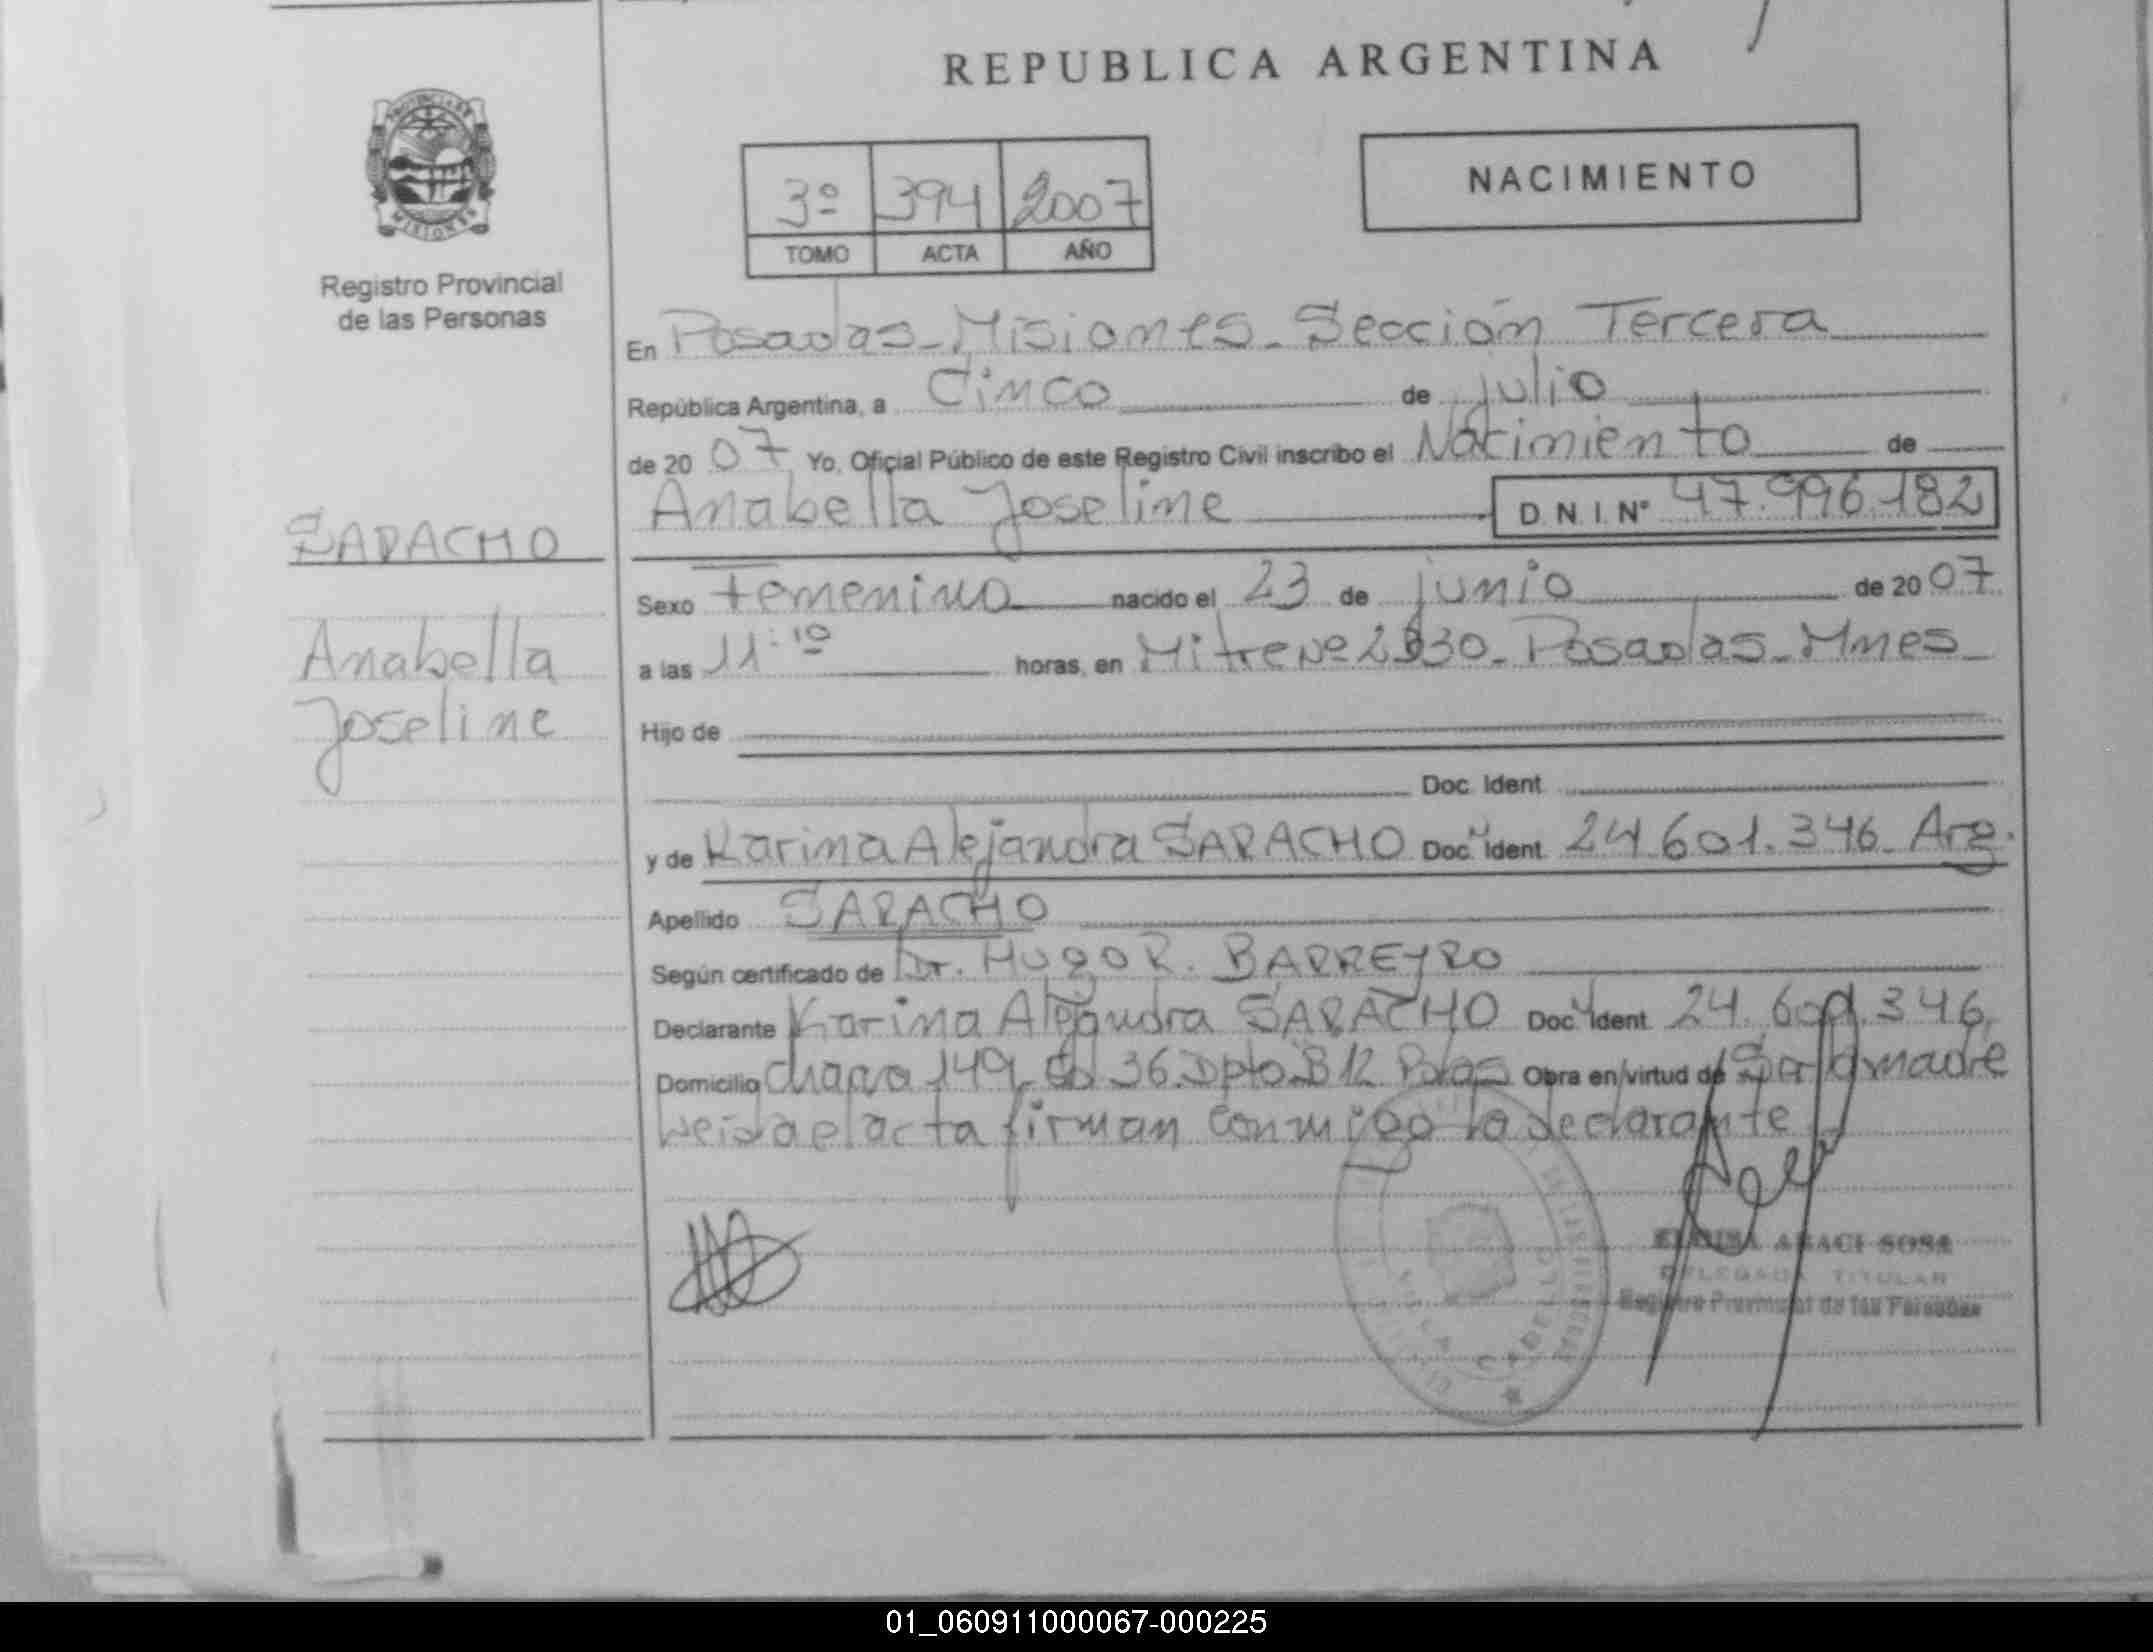 REPUBLICA ARGENTINA
PROVINCIA DE
MISIONES
Registro Provincial
de las Personas
3º 394 2007
TOMO ACTA AÑO
NACIMIENTO
En Posadas - Misiones - Sección Tercera
República Argentina, a Cinco de julio
de 20 07 Yo, Oficial Público de este Registro Civil inscribo el Nacimiento de
Anabella Joseline D.N.I. Nº 47.996.182
SARACHO
Anabella
Joseline
Sexo Femenino nacido el 23 de junio de 20 07
a las 11:10 horas, en Mitre Nº 2330 - Posadas - Mnes
Hijo de
Doc. Ident.
y de Karina Alejandra SARACHO Doc. Ident. 24.601.346 - Arg.
Apellido SARACHO
Según certificado de Dr. HUGO R. BARREYRO
Declarante Karina Alejandra SARACHO Doc. Ident. 24.601.346
Domicilio chacra 149 36 Dpto B 12 Pdas Obra en virtud de Ser la madre
Leida el acta firman conmigo la declarante
ARACI SOSA
DELEGADA TITULAR
Registro Provincial de las Personas
VILLA CABELLO
01_060911000067-000225